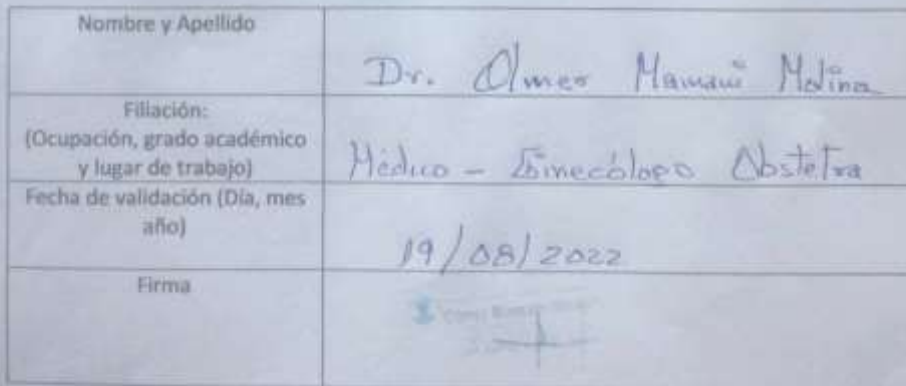 Nombre y Apellido
Dr. Olmer Mamani Molina
Filiación:
(Ocupación, grado académico
y lugar de trabajo)
Médico - Ginecólogo Obstetra
Fecha de validación (Día, mes
año)
19/08/2022
Firma